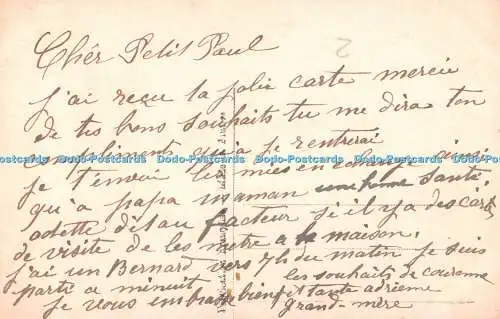 Chér Petit Paul
j'ai reçu ta jolie carte mercie
de tes bons souhaits tu me dira ton
compliment qu'a je rentrerai
je t'envoi les mies en échange ainsi
qu'a papa maman une bonne santé
Dodo-Postcards Dodo-Postcards Dodo-Postcards Dodo-Postcards Dodo-Postcards
odette dit au facteur si il y a des cart
de visite de les metre a la maison,
j'ai un Bernard vers 7h du matin je suis
parti a minuit les souhaits de couronne
je vous embrasse bien fort tante adrienne
grand-mère